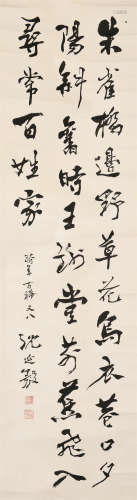 朱雀橋邊野草花烏衣巷口夕
陽斜舊時王謝堂前燕飛入
尋常百姓家
沈延毅